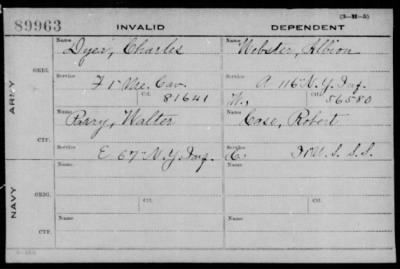 89963
INVALID
DEPENDENT
(3-11-5)
ARMY
NAVY
ORIG.
CTF.
ORIG.
CTF.
Name
Dyer, Charles
Name
Webster, Albion
Service
F 1" Me. Cav.
Ctf.
81641
Service
A 116" N.Y. Inf.
W.,
Ctf.
56580
Name
Perry, Walter
Name
Case, Robert
Service
E 67" N.Y. Inf.
Service
C. 3 U.S.S.S.
Name
Ctf.
Name
Ctf.
Service
Service
Name
Name
Service
Service